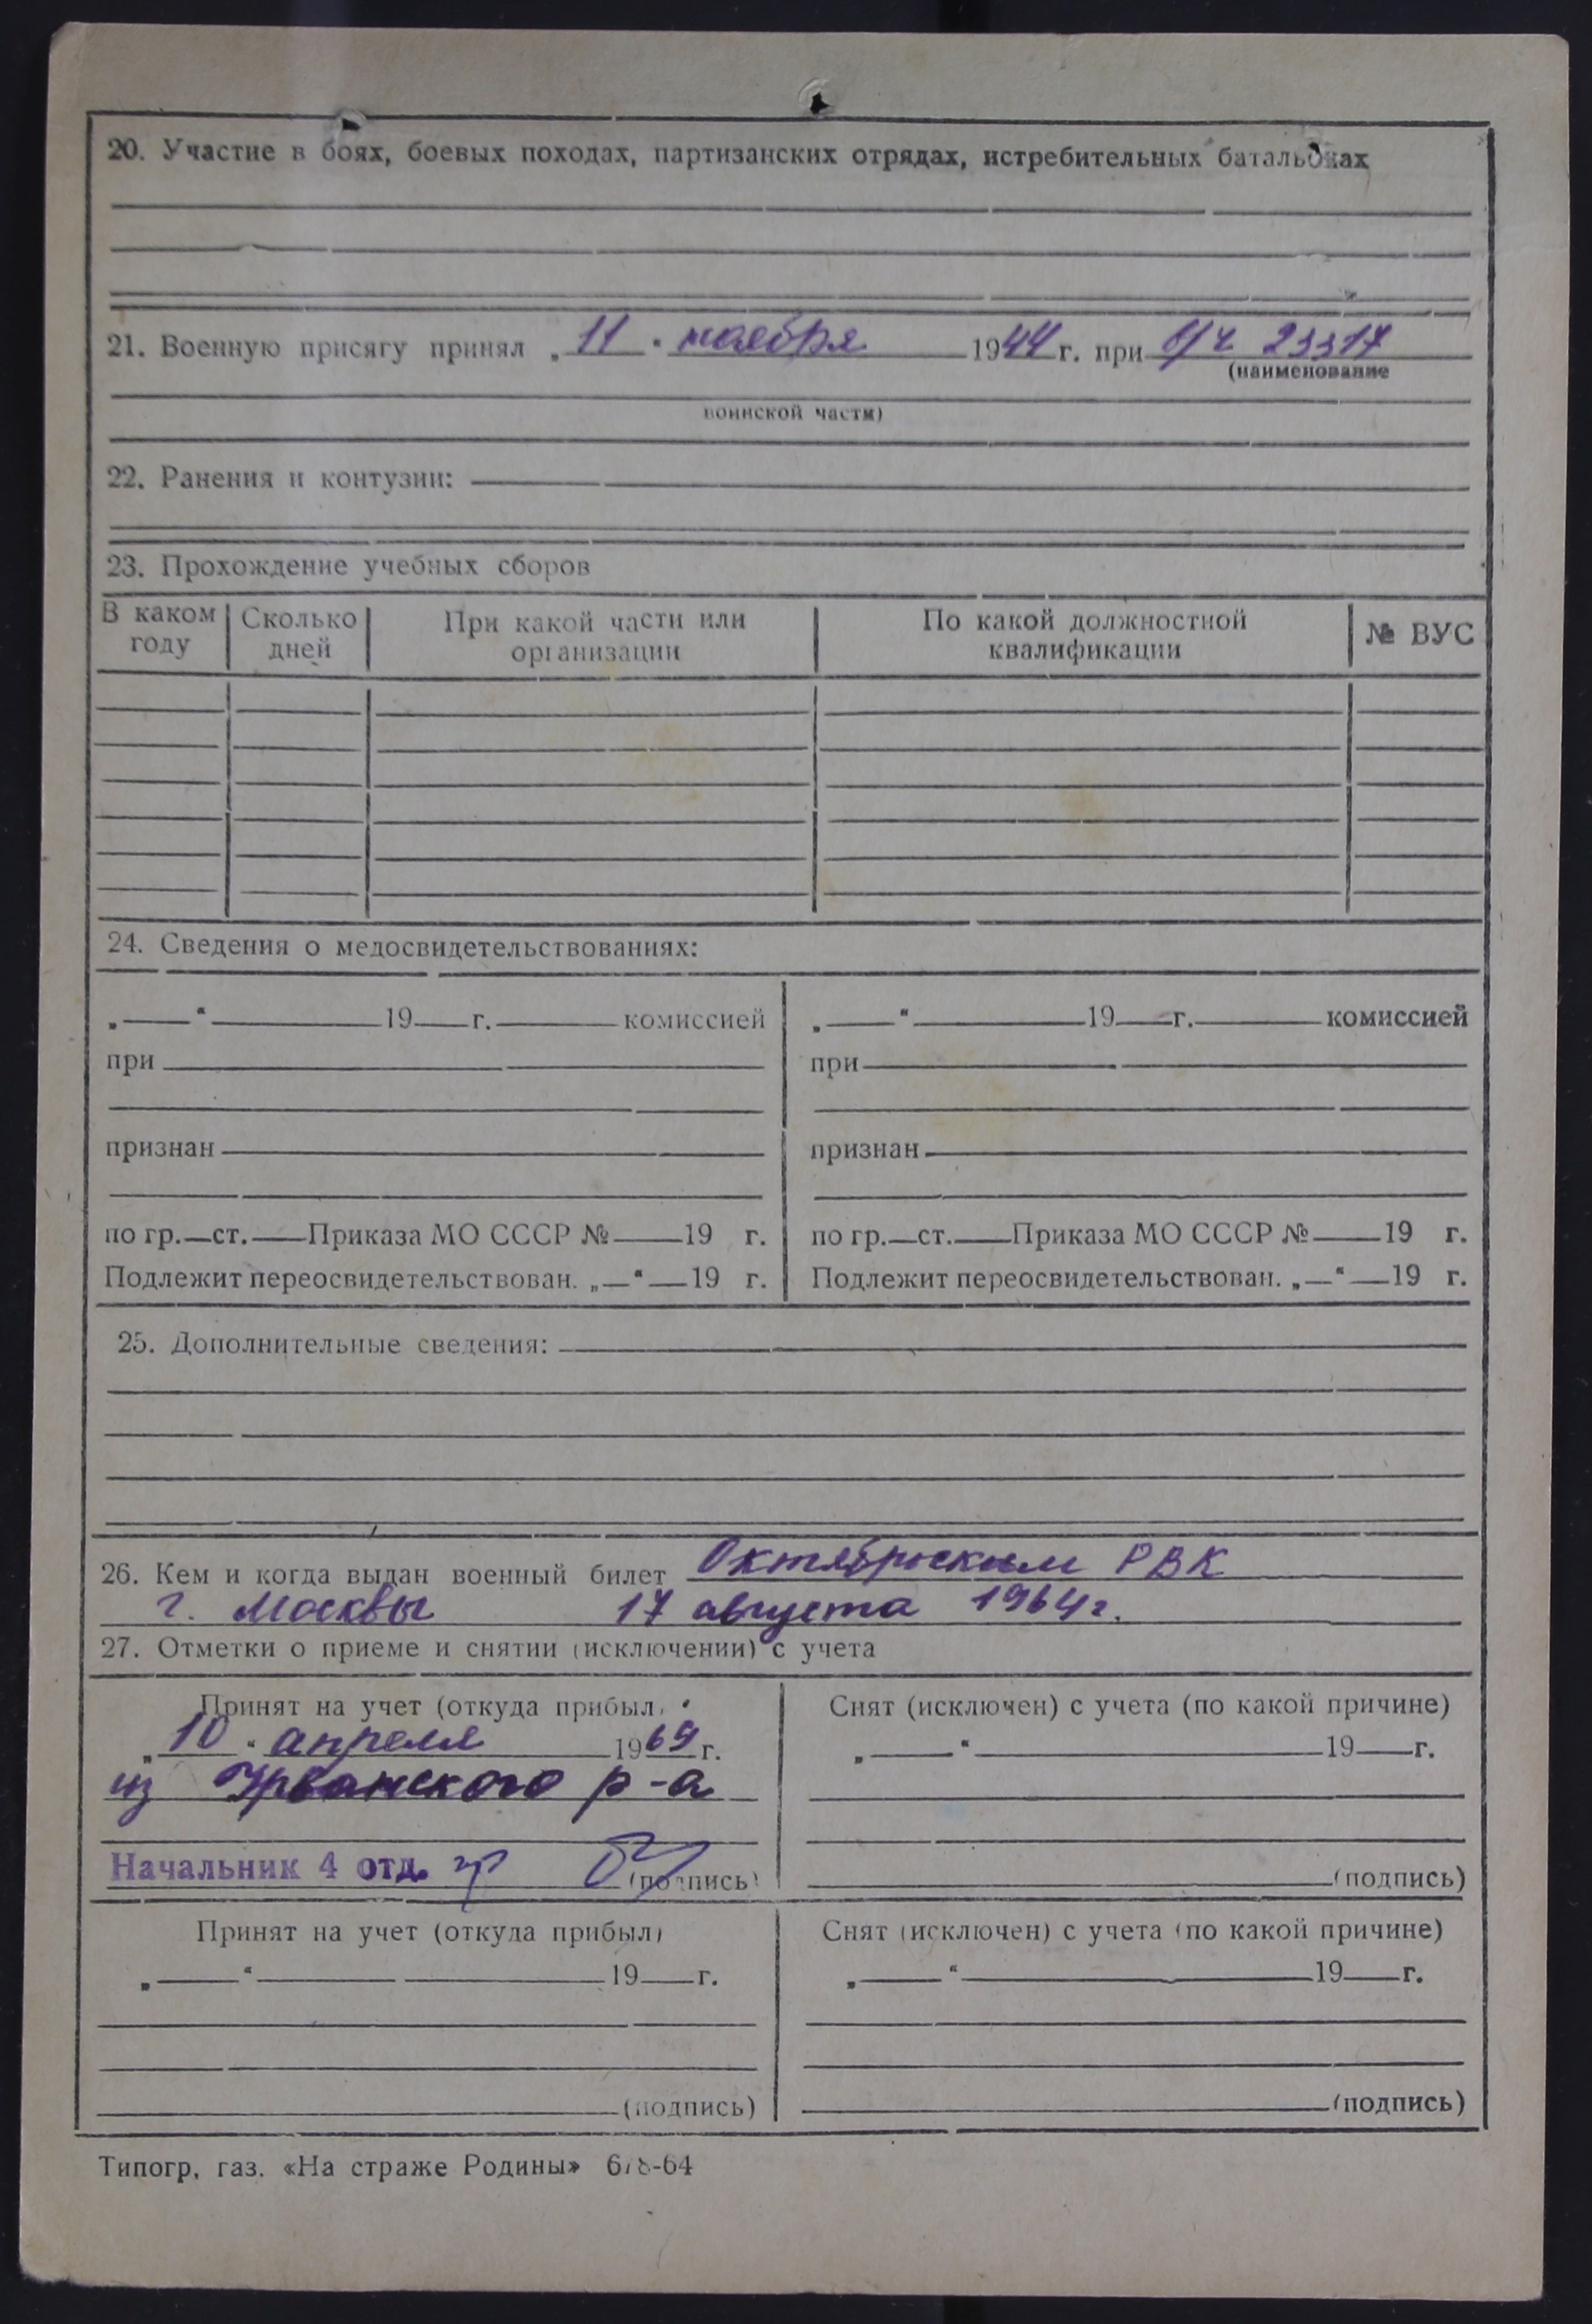 20. Участие в боях, боевых походах, партизанских отрядах, истребительных батальонах
21. Военную присягу принял „11" ноября 1944 г. при в/ч 23317
(наименование
воинской части)
22. Ранения и контузии:
23. Прохождение учебных сборов
В каком году | Сколько дней | При какой части или организации | По какой должностной квалификации | № ВУС
24. Сведения о медосвидетельствованиях:
„ " 19 г. комиссией „ " 19 г. комиссией
при при
признан признан
по гр. ст. Приказа МО СССР № 19 г. по гр. ст. Приказа МО СССР № 19 г.
Подлежит переосвидетельствован. „ " 19 г. Подлежит переосвидетельствован. „ " 19 г.
25. Дополнительные сведения:
26. Кем и когда выдан военный билет Октябрьским РВК
г. Москвы 17 августа 1964г.
27. Отметки о приеме и снятии (исключении) с учета
Принят на учет (откуда прибыл) Снят (исключен) с учета (по какой причине)
„10" апреля 1969 г. „ " 19 г.
из Урванского р-а
Начальник 4 отд. (подпись) (подпись)
Принят на учет (откуда прибыл) Снят (исключен) с учета (по какой причине)
„ " 19 г. „ " 19 г.
(подпись) (подпись)
Типогр. газ. «На страже Родины»